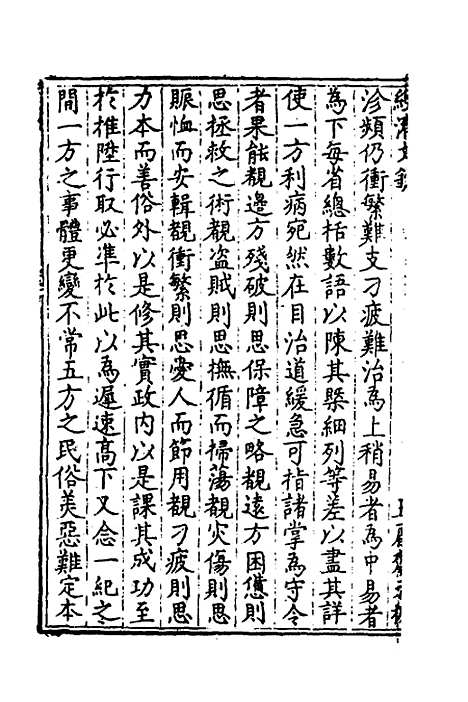 沴頻仍衝繁難支刁疲難治為上稍易者為中易者
為下每省總括數語以陳其槩細列等差以盡其詳
使一方利病宛然在目治道緩急可指諸掌為守令
者果能覩邊方殘破則思保障之略覩遠方困憊則
思拯救之術覩盗賊則思撫循而掃蕩覩災傷則思
賑恤而安輯覩衝繁則思愛人而節用覩刁疲則思
力本而善俗外以是修其實政内以是課其成功至
於推陞行取必準於此以為遲速高下又念一紀之
間一方之事體更變不常五方之民俗美惡難定本